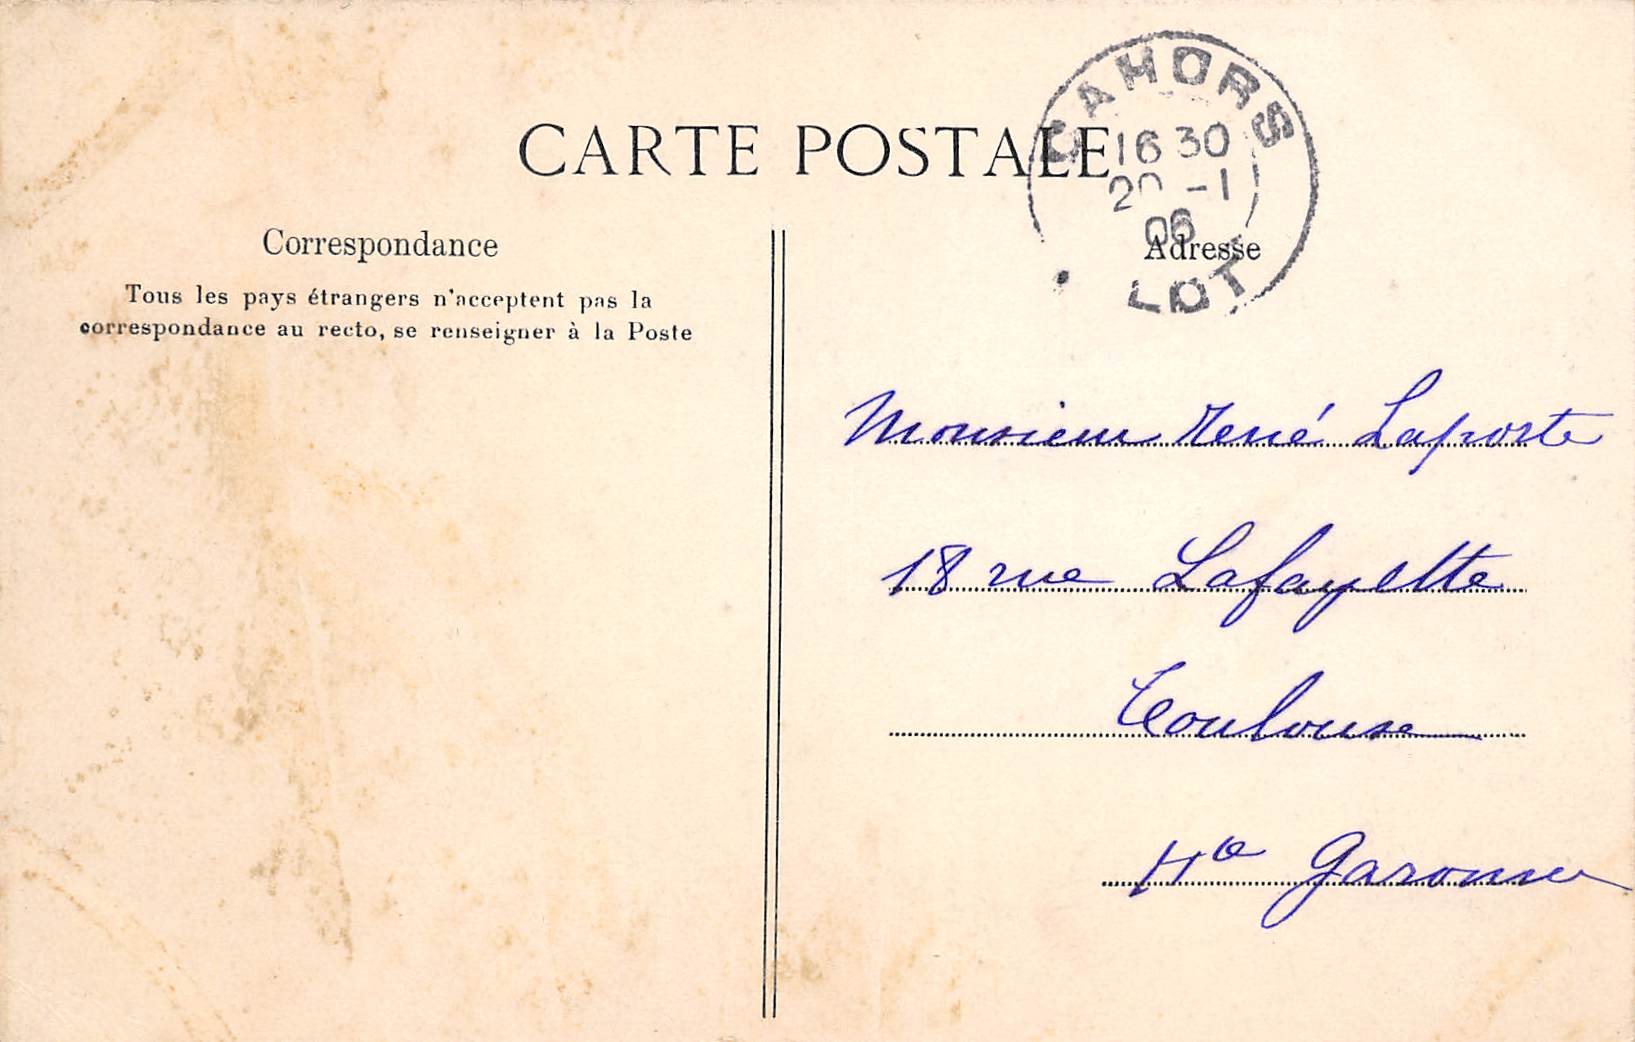 CARTE POSTALE
CAHORS
16 30
20 -1
06
LOT
Correspondance
Tous les pays étrangers n'acceptent pas la
correspondance au recto, se renseigner à la Poste
Adresse
Monsieur René Laporte
18 rue Lafayette
Toulouse
Hte Garonne